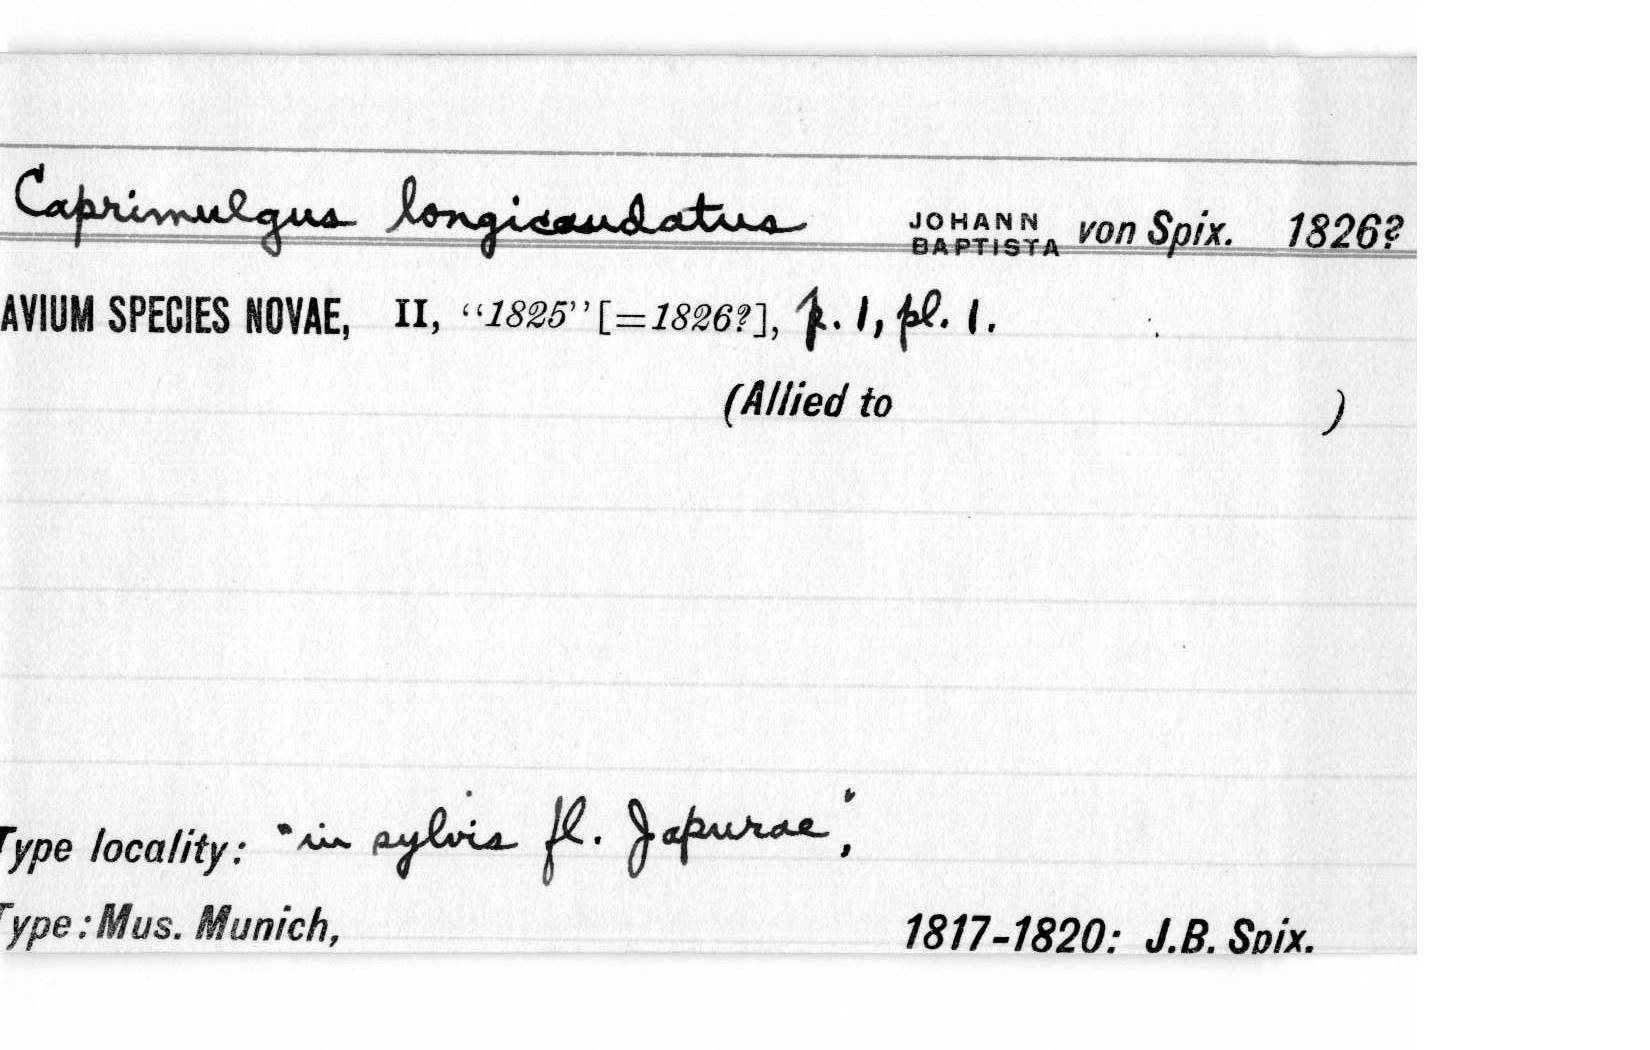 Caprimulgus longicaudatus JOHANN BAPTISTA von Spix. 1826?
AVIUM SPECIES NOVAE, II, "1825" [=1826?], p. 1, pl. 1.
(Allied to )
Type locality: "in sylvis fl. Japurae",
Type: Mus. Munich, 1817-1820: J.B. Spix.